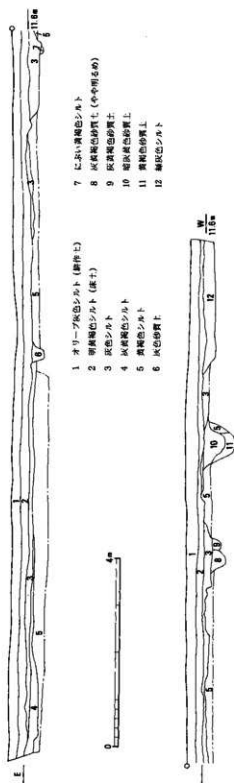 E
11.6m
1 2 3 4 5 3 5 6 3 3 7 6
1 オリーブ灰色シルト (耕作土)
2 明黄褐色シルト (床土)
3 灰色シルト
4 灰黄褐色シルト
5 黄褐色シルト
6 灰色砂質土
7 にぶい黄褐色シルト
8 灰黄褐色砂質土 (やや明るめ)
9 灰黄褐色砂質土
10 暗灰黄色砂質土
11 黄褐色砂質土
12 緑灰色シルト
0 4m
W
11.6m
5 1 2 3 8 9 5 10 9 11 3 12